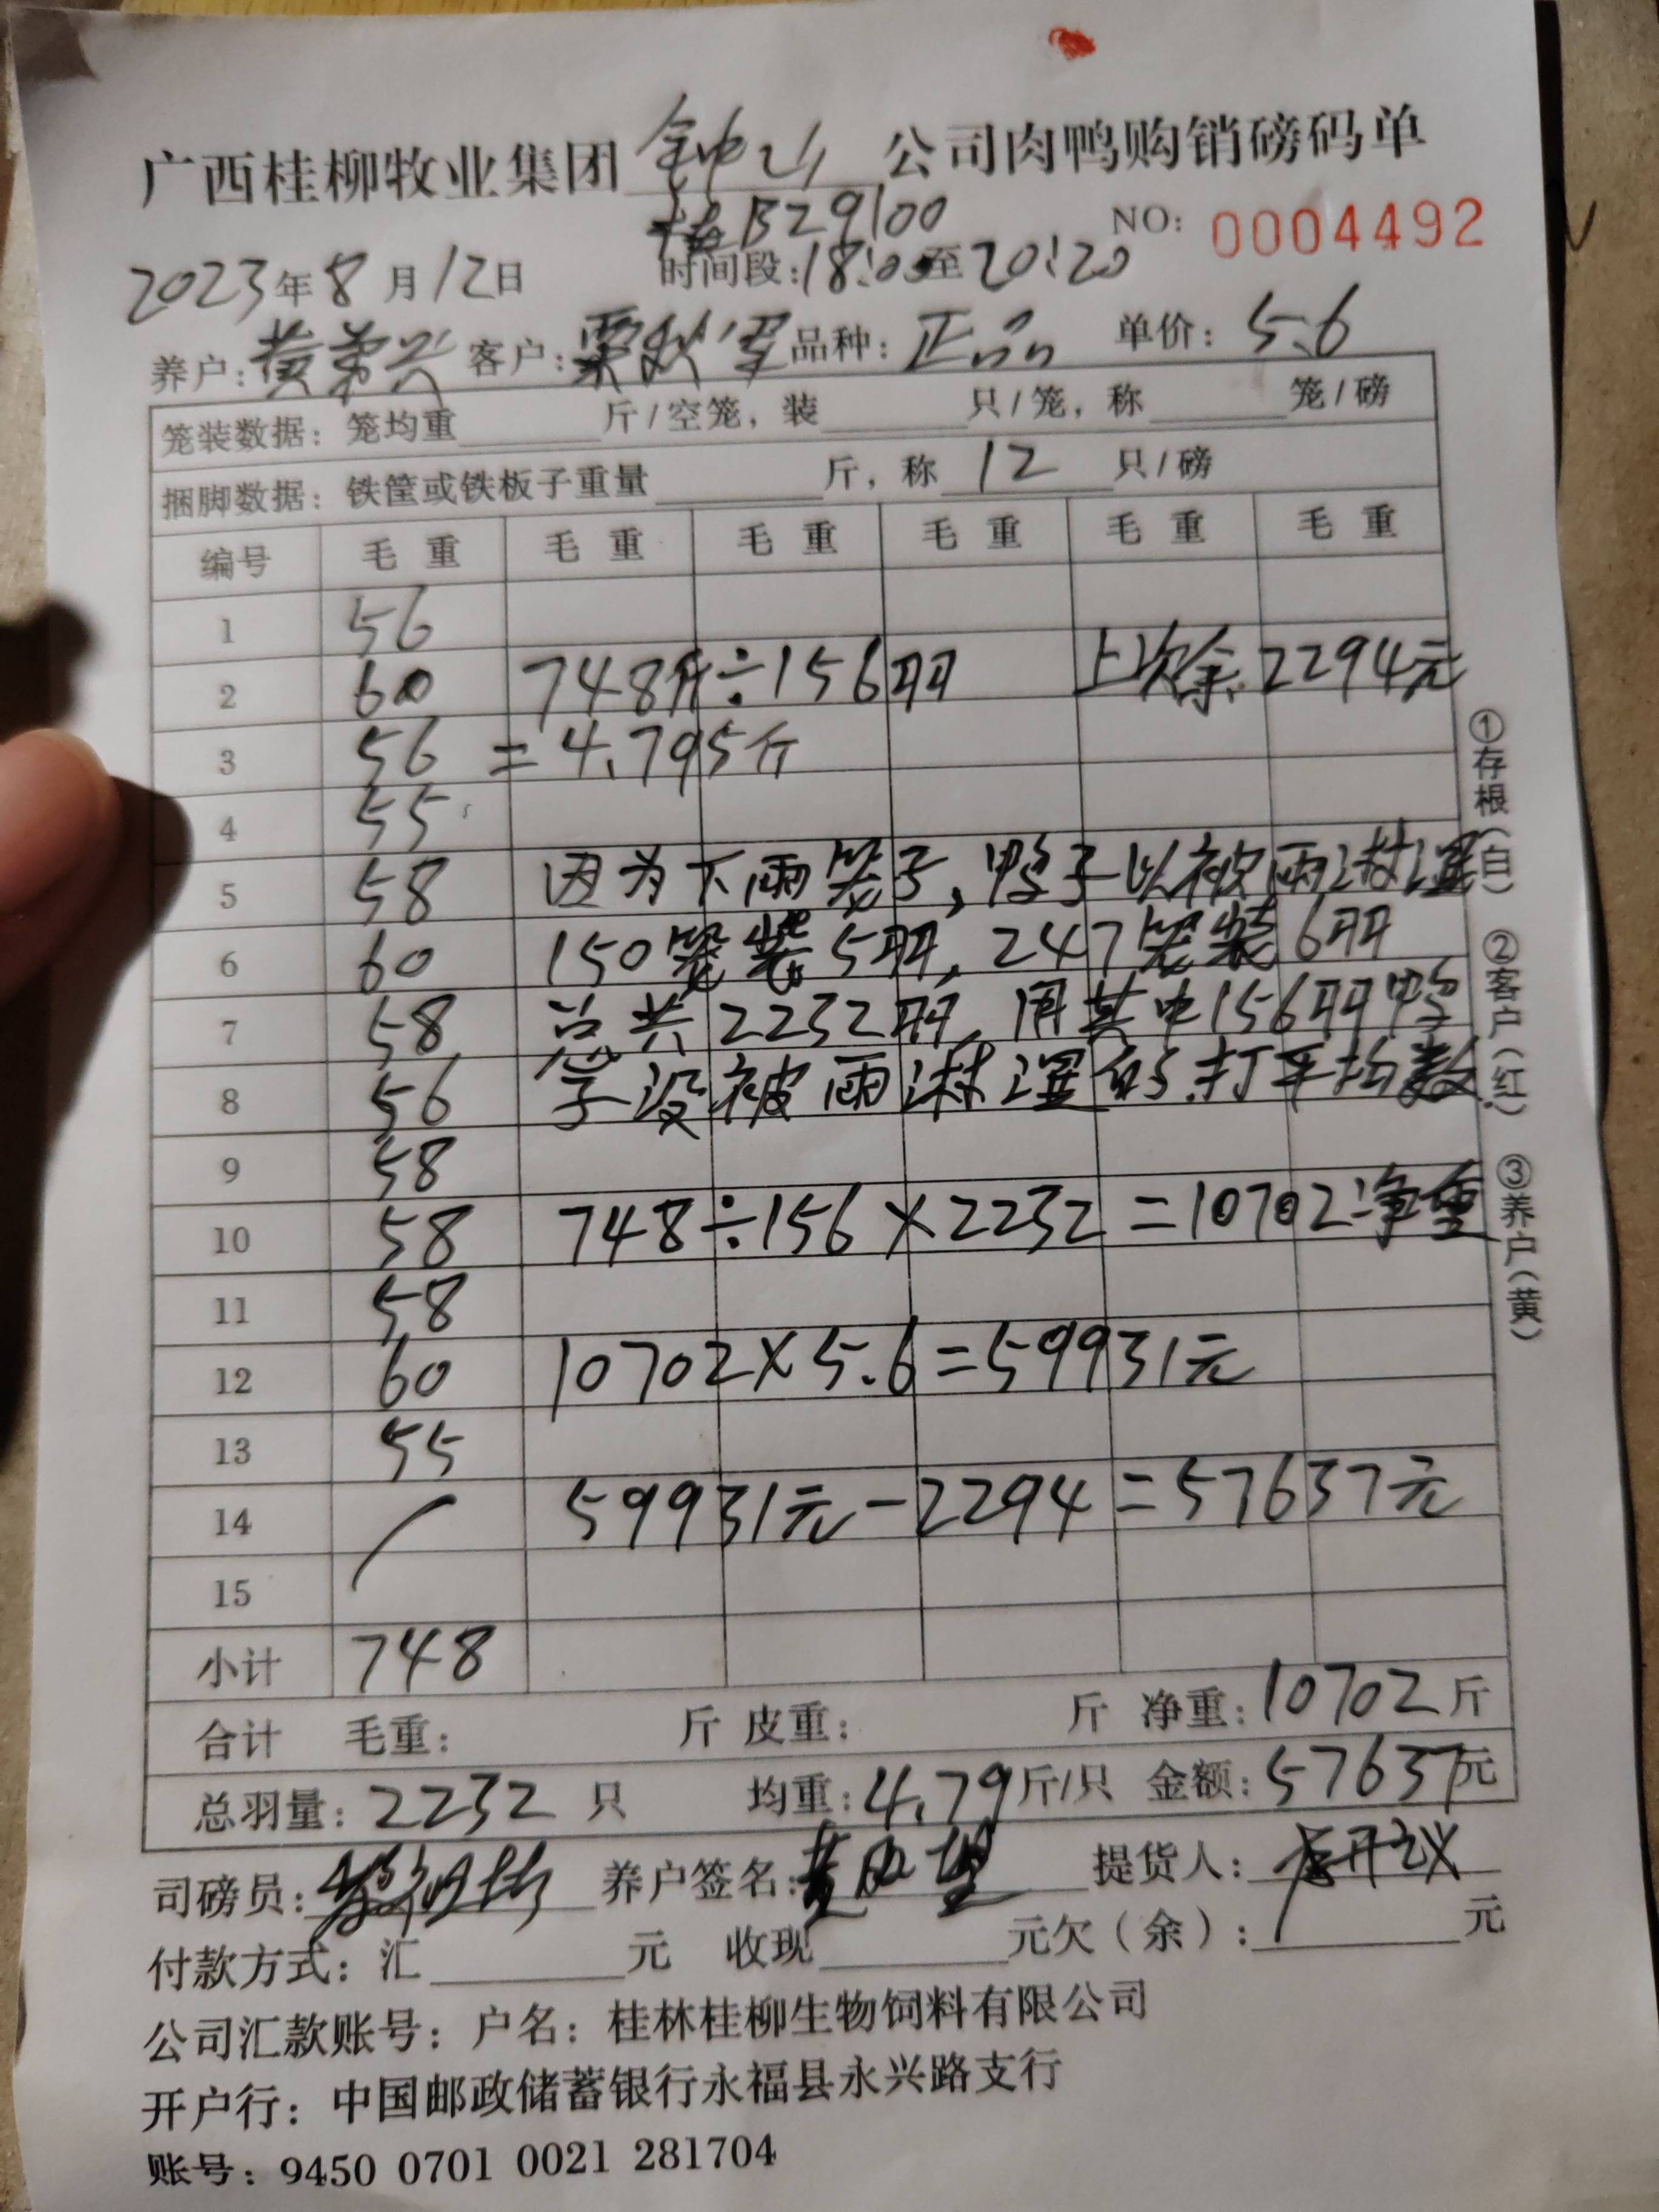 广西桂柳牧业集团钟山公司肉鸭购销磅码单
桂B29100 NO: 0004492
2023年8月12日 时间段:18:00至20:20
养户:黄弟兴 客户: 品种:正品 单价:5.6
笼装数据:笼均重 斤/空笼,装 只/笼,称 笼/磅
捆脚数据:铁筐或铁板子重量 斤,称 12 只/磅
编号 毛重 毛重 毛重 毛重 毛重 毛重
1 56
2 60 748斤÷156羽 上次余2294元
3 56 =4.795斤
4 55
5 58 因为下雨笼子,鸭子以被雨淋湿
6 60 150笼装5羽,247笼装6羽
7 58 总共2232羽,用其中156羽鸭
8 56 子没被雨淋湿的打平均数
9 58
10 58 748÷156×2232=10702净重
11 58
12 60 10702×5.6=59931元
13 55
14 59931元-2294=57637元
15
小计 748
合计 毛重: 斤 皮重: 斤 净重:10702斤
总羽量:2232 只 均重:4.79斤/只 金额:57637元
司磅员: 养户签名: 提货人:
付款方式:汇 元 收现 元欠(余): 元
公司汇款账号:户名:桂林桂柳生物饲料有限公司
开户行:中国邮政储蓄银行永福县永兴路支行
账号:9450 0701 0021 281704
①存根(白) ②客户(红) ③养户(黄)